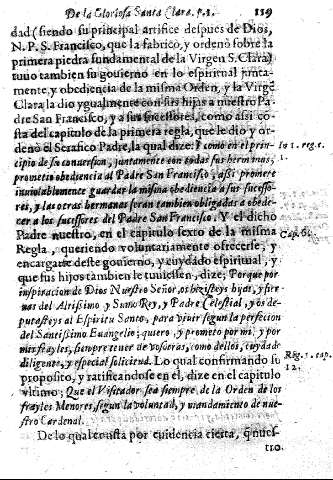 De la Gloriosa Santa Clara. p. 1. 119
dad (siendo su principal artifice despues de Dios,
N. P. S. Francisco, que la fabricò, y ordenò sobre la
primera piedra fundamental de la Virgen S. Clara)
tuuo tambien su gouierno en lo espiritual junta-
mente, y obediencia de la misma Orden, y la Virgẽ
Clara la dio ygualmente con sus hijas a nuestro Pa-
dre San Francisco, y a sus sucessores, como assi co-
sta del capitulo de la primera regla, que le dio y or-
denò el Serafico Padre, la qual dize: Y como en el prin-
cipio de su conuersion, juntamente con todas sus hermanas,
prometio obediencia al Padre San Francisco, assi promete
inuiolablemente guardar la misma obediencia a sus sucesso-
res, y las otras hermanas seran tambien obligadas a obede-
cer a los sucessores del Padre San Francisco. Y el dicho
Padre nuestro, en el capitulo sexto de la misma
Regla, queriendo voluntariamente ofrecerse, y
encargarse deste gouierno, y cuydado espiritual, y
que sus hijos tambien le tuuiessen, dize; Porque por
inspiracion de Dios Nuestro Señor, os hezisteys hijas, y sier-
uas del Altissimo, y Sumo Rey, y Padre Celestial, y os de-
putasteys al Espiritu Santo, para viuir segun la perfecion
del Santissimo Euangelio; quiero, y prometo por mi, y por
mis frayles, siempre tener de vosotras, como dellos, cuydado
diligente, y especial solicitud. Lo qual confirmando su
proposito, y ratificandose en el, dize en el capitulo
vltimo; Que el Visitador sea siempre de la Orden de los
frayles Menores, segun la voluntad, y mandamiento de nue-
stro Cardenal.
De lo qual consta por euidencia cierta, q̃ nues-
tro.
1. reg.
1.
Cap. 6.
Reg. 1. cap.
12.